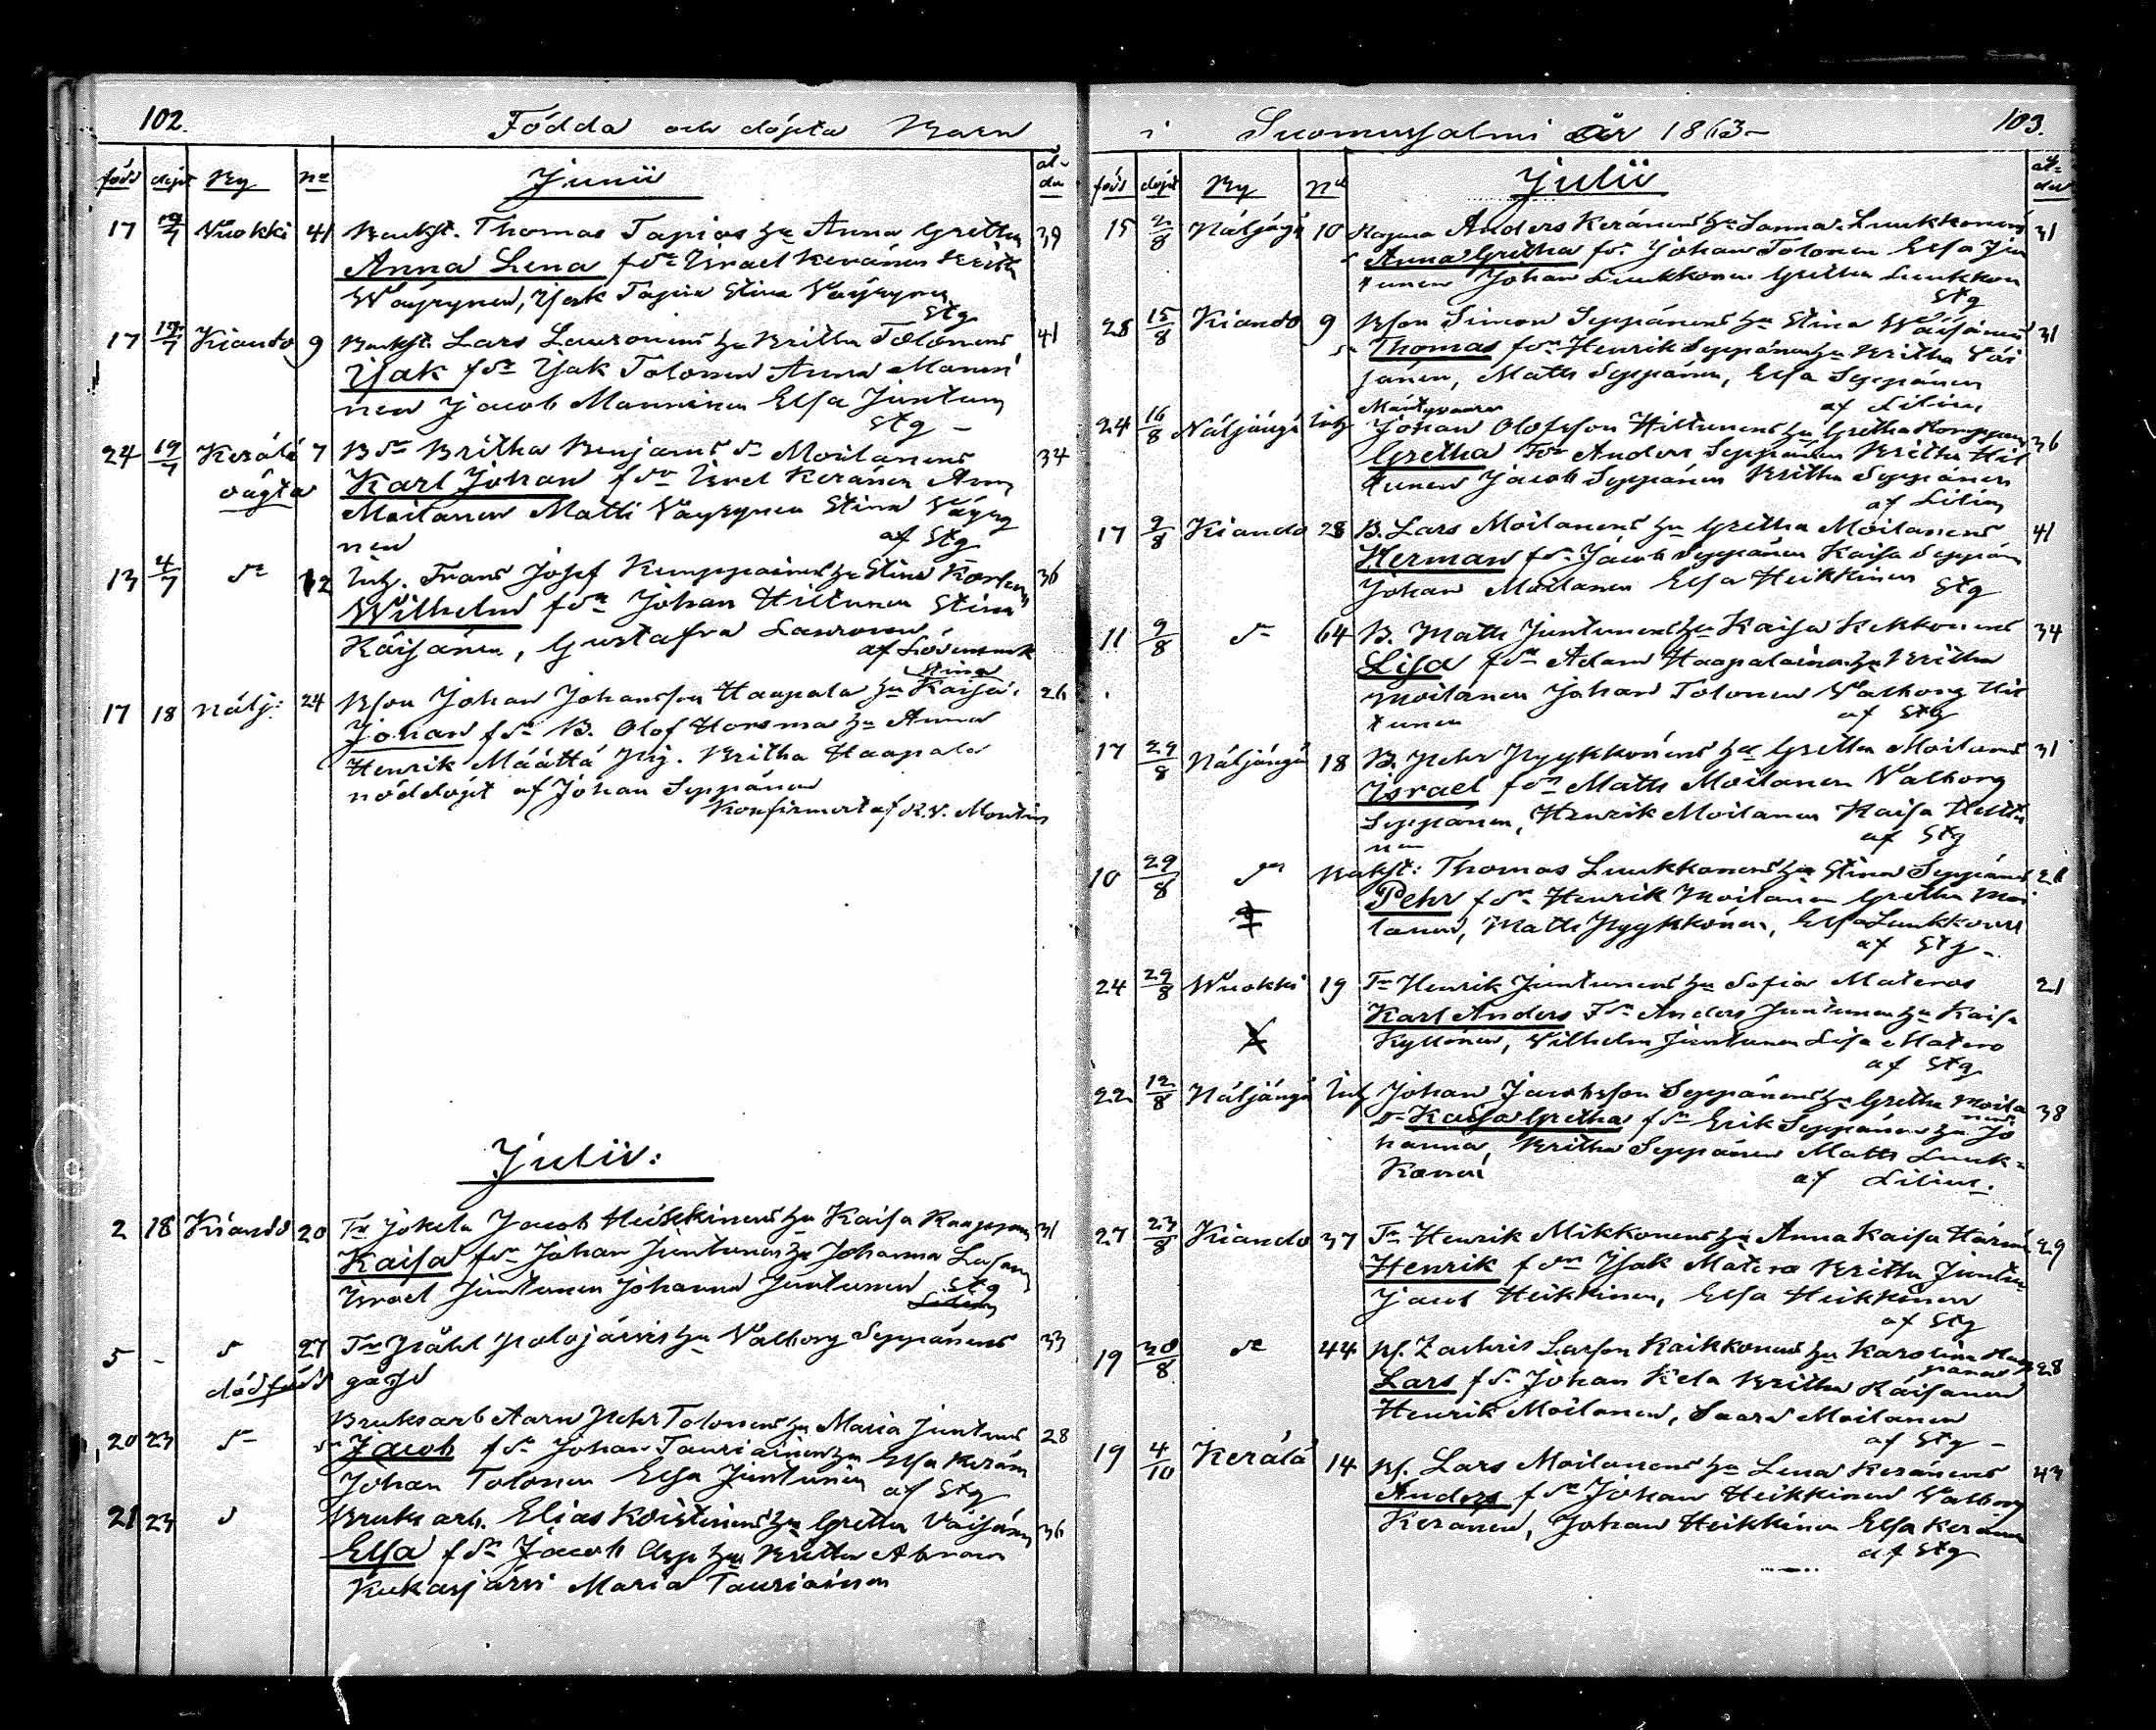 102.
Födda och döpta Barn
född döpt By No Junii ål-der
17 19/7 Wuokki 41 Backst. Thomas Tapios hu Anna Gretha 39
Anna Lena f dr Israel Keränen Britha
Wäyrynen, Isak Tapio Stina Wäyrynen
Stg
17 19/7 Kiando 9 Backst. Lars Lauronens hu Britha Tolonens 41
Isak f dr Isak Tolonen Anna Manni
nen Jacob Manninen Elsa Juntun
Stg
24 19/7 Kerälä 7 B dr Britha Benjams dr Moilanens 34
oägta Karl Johan f dr Isrel Keränen Anna
Moilanen Matti Wäyrynen Stina Wäyry
nen af Stg
13 4/7 dr 12 Inh. Frans Josef Kemppainens hu Stina 36
Wilhelm f dr Johan Hiltunen Stina
Käisänen, Gustafva Lauronen
af Lövenmark
Stina
17 18 Nälj: 24 Bson Johan Johansson Haapala hu Kaisa 26
Johan f dr B. Olof Horsma hu Anna
Henrik Määttä Pig. Britha Haapala
nöddöpt af Johan Seppänen
Konfirmert af K.V. Montin
Julii:
2 18 Kiando 20 Tr Jokela Jacob Heikkinens hu Kaisa 31
Kaisa f dr Johan Juntunen hu Johanna
Israel Juntunen Johanna Juntunen Stg
5 - d 27 Tr Påhl Polojärvis hu Walborg Seppänens 33
dödfödd gosse
Bruksarb Aarn Pehr Tolonens hu Maria Juntuns 28
20 23 dr Jacob f dr Johan Tauriainen hu Elsa Kerän
Johan Tolonen Elsa Juntunen af Stg
21 23 d Bruks arb. Elias Koistinens hu Gretha Väisänen 36
Elsa f dr Jacob hu Britha Abram
Kukasjärvi Maria Tauriainen
103.
i Suomussalmi År 1863
född döpt By No Julii ål-der
15 2/8 Näljängä 10 Anders Keränens hu Sanna Luukkonens 31
Anna Gretha f dr Johan Tolonen Elsa Jun
tunen Johan Luukkonen Gretha Luukkon
Stg
28 15/8 Kiando 9 Bson Simon Seppänens hu Stina Wäisänens 31
Thomas f dr Henrik Seppänen hu Britha Väi
sänen, Matts Seppänen, Elsa Seppänen
af Lilius
Mäntyvaara
24 16/8 Näljängä Inh Johan Olofsson Hiltunens hu Gretha 36
Gretha F dr Anders Seppänen Britha Hil
tunen Jacob Seppänen Britha Seppänen
af Lilius
17 9/8 Kiando 28 B. Lars Moilanens hu Gretha Moilanens 41
Herman f dr Jacob Seppänen Kaisa Seppän
Johan Moilanen Elsa Heikkinen Stg
11 9/8 dr 64 B. Matts Juntunens hu Kaisa Kekkonens 34
Lisa f dr Adam Haapalainen hu Britha
Moilanen Johan Tolonen Walborg Hil
tunen af Stg
17 29/8 Näljängä 18 B. Pehr Pyykkönens hu Gretha Moilans 31
Israel f dr Matts Moilanen Valborg
Seppänen, Henrik Moilanen Kaisa
nen af Stg
10 29/8 dr Backst: Thomas Luukkonens hu Stina Seppäns
Pehr f dr Henrik Moilanen Gretha Moi
lanen, Matts Pyykkönen, Elsa Luukkonen
af Stg
24 29/8 Wuokki 19 Tr Henrik Juntunens hu Sofia Materos 21
Karl Anders F dr Anders Juntunen hu Kaisa
Kyllönen, Vilhelm Juntunen Lisa Matero
af Stg
22 12/8 Näljängä Inh Johan Jacobsson Seppänens hu Gretha Moila 38
nens
dr Kaisa Gretha f dr Erik Seppänen hu Jo
hanna, Britha Seppänen Matts Luuk-
konen af Lilius.
27 23/8 Kiando 37 Tr Henrik Mikkonens hu Anna Kaisa 29
Henrik f dr Isak Matero Britha Juntu
Jacob Heikkinen, Elsa Heikkinen
af Stg
19 30/8 dr 44 Bf. Zachris Larson Kaikkonens hu Karolina 28
Lars f dr Johan Kela Britha Käisänen
Henrik Moilanen, Saara Moilanen
af Stg
19 4/10 Kerälä 14 Bf. Lars Moilanens hu Lena Keränens 43
Anders f dr Johan Heikkinen Walborg
Keränen, Johan Heikkinen Elsa Keränen
af Stg